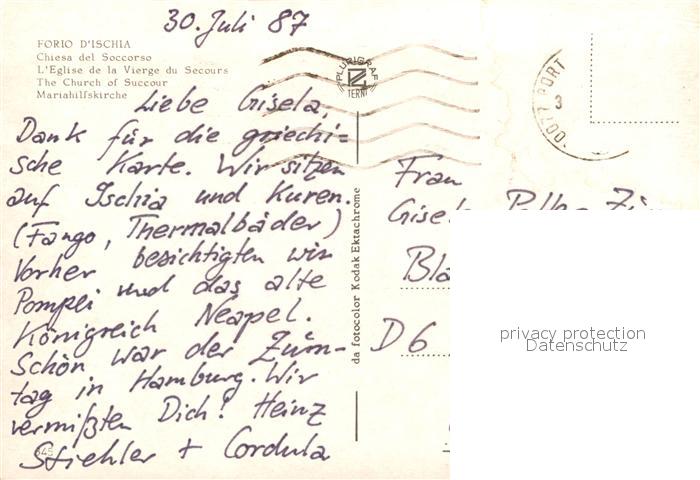 30. Juli 87
FORIO D'ISCHIA
Chiesa del Soccorso
L'Eglise de la Vierge du Secours
The Church of Succour
Mariahilfskirche
PLURIGRAF
TERNI
80077 PORT
3
Liebe Gisela,
Dank für die griechi-
sche Karte. Wir sitzen
auf Ischia und Kuren.
(Fango, Thermalbäder)
Vorher besichtigten wir
Pompei und das alte
Königreich Neapel.
Schön war der
tag in Hamburg. Wir
vermißten Dich! Heinz
Stiehler + Cordula
645
da fotocolor Kodak Ektachrome
Frau
Gisela
Bla
D 6
privacy protection
Datenschutz